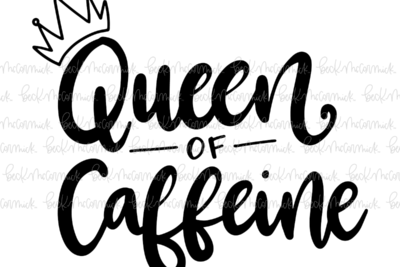 Queen
OF
Caffeine